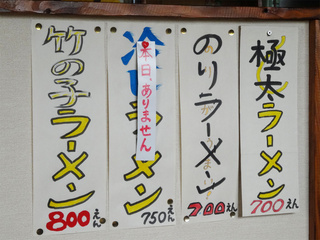 竹の子ラーメン
800えん
冷しラーメン
750えん
本日、ありません
のりラーメン
700えん
極太ラーメン
700えん